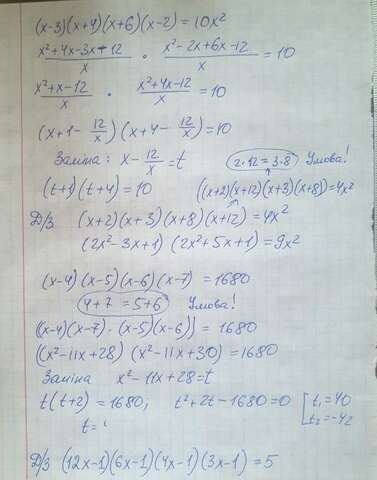 (x-3)(x+4)(x+6)(x-2)=10x²
(x²+4x-3x-12)/x · (x²-2x+6x-12)/x =10
(x²+x-12)/x · (x²+4x-12)/x =10
(x+1-12/x)(x+4-12/x)=10
Заміна: x-12/x=t 2·12=3·8 Умова!
(t+1)(t+4)=10 ((x+2)(x+12)(x+3)(x+8))=4x²
Д/з (x+2)(x+3)(x+8)(x+12)=4x²
(2x²-3x+1)(2x²+5x+1)=9x²
(x-4)(x-5)(x-6)(x-7)=1680
4+7=5+6 Умова!
((x-4)(x-7)·(x-5)(x-6))=1680
(x²-11x+28)(x²-11x+30)=1680
Заміна x²-11x+28=t
t(t+2)=1680; t²+2t-1680=0 [t₁=40
t₂=-42
t=
Д/з (12x-1)(6x-1)(4x-1)(3x-1)=5